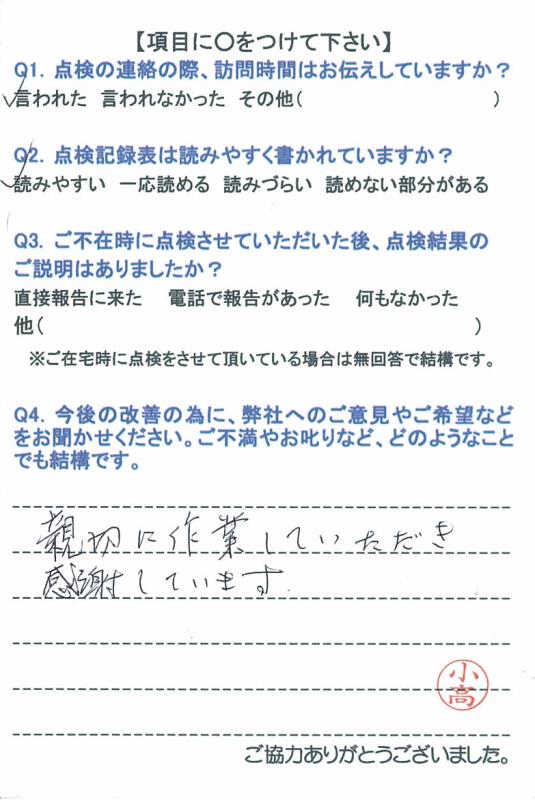 【項目に〇をつけて下さい】
Q1. 点検の連絡の際、訪問時間はお伝えしていますか？
言われた 言われなかった その他( )
Q2. 点検記録表は読みやすく書かれていますか？
読みやすい 一応読める 読みづらい 読めない部分がある
Q3. ご不在時に点検させていただいた後、点検結果の
ご説明はありましたか？
直接報告に来た 電話で報告があった 何もなかった
他( )
※ご在宅時に点検をさせて頂いている場合は無回答で結構です。
Q4. 今後の改善の為に、弊社へのご意見やご希望など
をお聞かせください。ご不満やお叱りなど、どのようなこと
でも結構です。
親切に作業していただき
感謝しています.
小高
ご協力ありがとうございました。